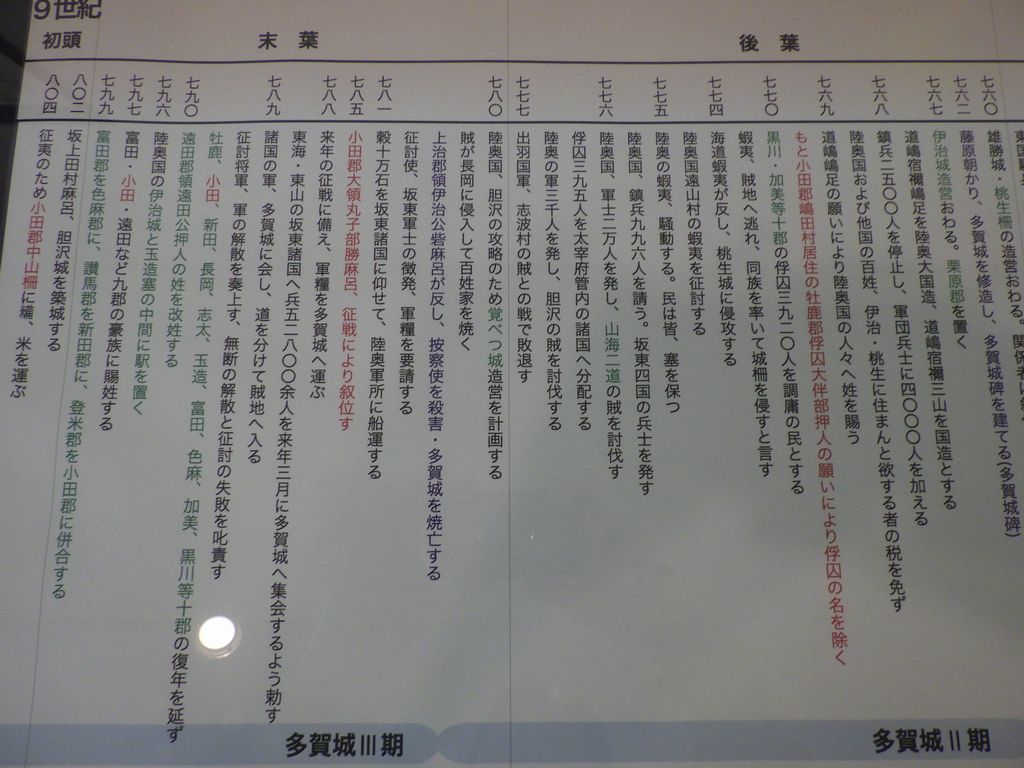 9世紀
初頭
末葉
後葉
七六〇
雄勝城・桃生柵の造営おわる。
七六二
藤原朝かり、多賀城を修造し、多賀城碑を建てる(多賀城碑)
七六七
伊治城造営おわる。栗原郡を置く
道嶋宿禰嶋足を陸奥大国造、道嶋宿禰三山を国造とする
七六八
鎮兵二五〇〇人を停止し、軍団兵士に四〇〇〇人を加える
陸奥国および他国の百姓、伊治・桃生に住まんと欲する者の税を免ず
七六九
道嶋嶋足の願いにより陸奥国の人々へ姓を賜う
もと小田郡嶋田村居住の牡鹿郡俘囚大伴部押人の願いにより俘囚の名を除く
七七〇
黒川・加美等十郡の俘囚三九二〇人を調庸の民とする
蝦夷、賊地へ逃れ、同族を率いて城柵を侵すと言す
七七四
海道蝦夷が反し、桃生城に侵攻する
陸奥国遠山村の蝦夷を征討する
七七五
陸奥の蝦夷、騒動する。民は皆、塞を保つ
陸奥国、鎮兵九九六人を請う。坂東四国の兵士を発す
七七六
陸奥国、軍士二万人を発し、山海二道の賊を討伐す
俘囚三九五人を太宰府管内の諸国へ分配する
陸奥の軍三千人を発し、胆沢の賊を討伐する
七七七
出羽国軍、志波村の賊との戦で敗退す
七八〇
陸奥国、胆沢の攻略のため覚べつ城造営を計画する
賊が長岡に侵入して百姓家を焼く
上治郡領伊治公砦麻呂が反し、按察使を殺害・多賀城を焼亡する
征討使、坂東軍士の徴発、軍糧を要請する
七八一
穀十万石を坂東諸国に仰せて、陸奥軍所に船運する
七八五
小田郡大領丸子部勝麻呂、征戦により叙位す
七八八
来年の征戦に備え、軍糧を多賀城へ運ぶ
東海・東山の坂東諸国へ兵五二八〇〇余人を来年三月に多賀城へ集会するよう勅す
七八九
諸国の軍、多賀城に会し、道を分けて賊地へ入る
征討将軍、軍の解散を奏上す、無断の解散と征討の失敗を叱責す
牡鹿、小田、新田、長岡、志太、玉造、富田、色麻、加美、黒川等十郡の復年を延ず
七九〇
遠田郡領遠田公押人の姓を改姓する
七九六
陸奥国の伊治城と玉造塞の中間に駅を置く
七九七
富田・小田・遠田など九郡の豪族に賜姓する
七九九
富田郡を色麻郡に、讃馬郡を新田郡に、登米郡を小田郡に併合する
八〇二
坂上田村麻呂、胆沢城を築城する
八〇四
征夷のため小田郡中山柵に糒、米を運ぶ
多賀城Ⅲ期
多賀城Ⅱ期